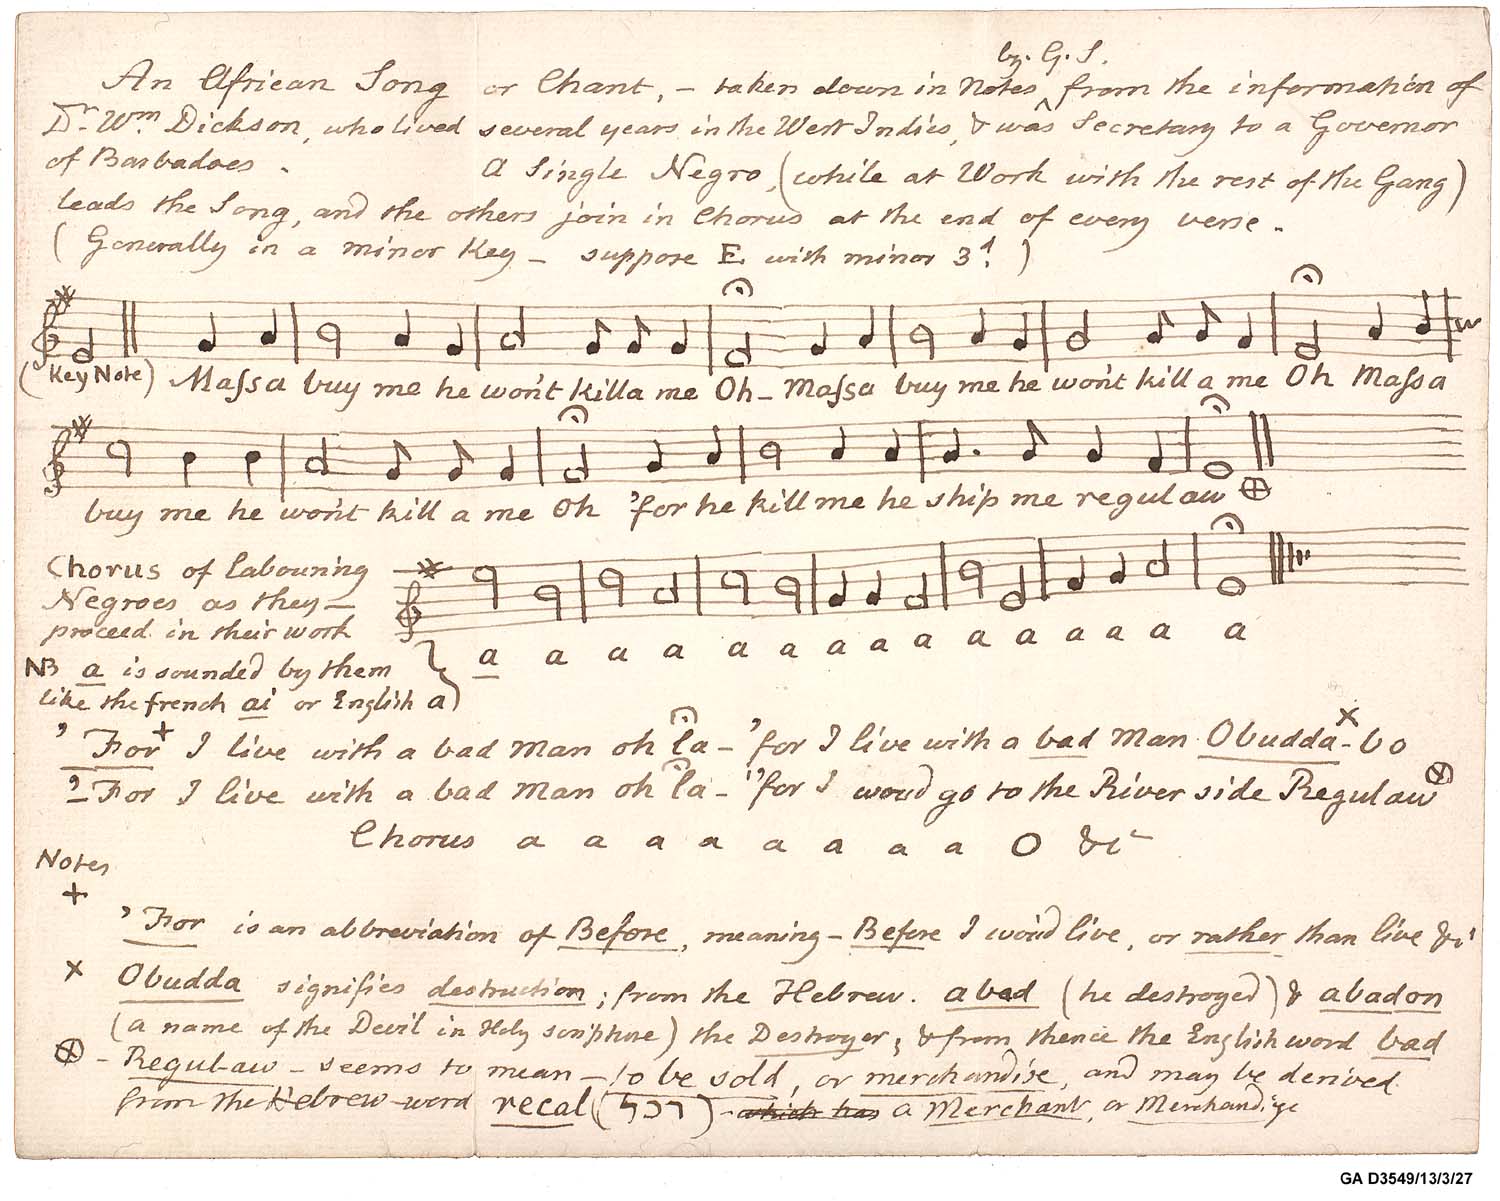 by G. S.
An African Song or Chant, – taken down in Notes ^ from the information of
Dr. Wm. Dickson, who lived several years in the West Indies, & was Secretary to a Governor
of Barbadoes. A Single Negro, (while at Work with the rest of the Gang)
leads the Song, and the others join in Chorus at the end of every verse.
(Generally in a minor Key – suppose E with minor 3d.)
(Key Note) Maſsa buy me he won't killa me Oh – Maſsa buy me he won't kill a me Oh Maſsa
buy me he won't kill a me Oh 'for he kill me he ship me regulaw ⊕
Chorus of Labouring
Negroes as they –
proceed in their work
a a a a a a a a a a a a a a
NB a is sounded by them
like the french ai or English a)
'For + I live with a bad man oh la – 'for I live with a bad Man Obudda x – bo
'For I live with a bad man oh la – 'for I woud go to the River side Regulaw ⊗
Chorus a a a a a a a a O &c
Notes
+
'For is an abbreviation of Before, meaning – Before I woud live, or rather than live &c
x Obudda signifies destruction; from the Hebrew. abad (he destroyed) & abadon
(a name of the Devil in Holy scripture) the Destroyer, & from thence the English word bad
⊗ – Regul-aw – seems to mean – to be sold, or merchandise, and may be derived
from the Hebrew word recal (רכל) – which has a Merchant, or Merchandize
GA D3549/13/3/27